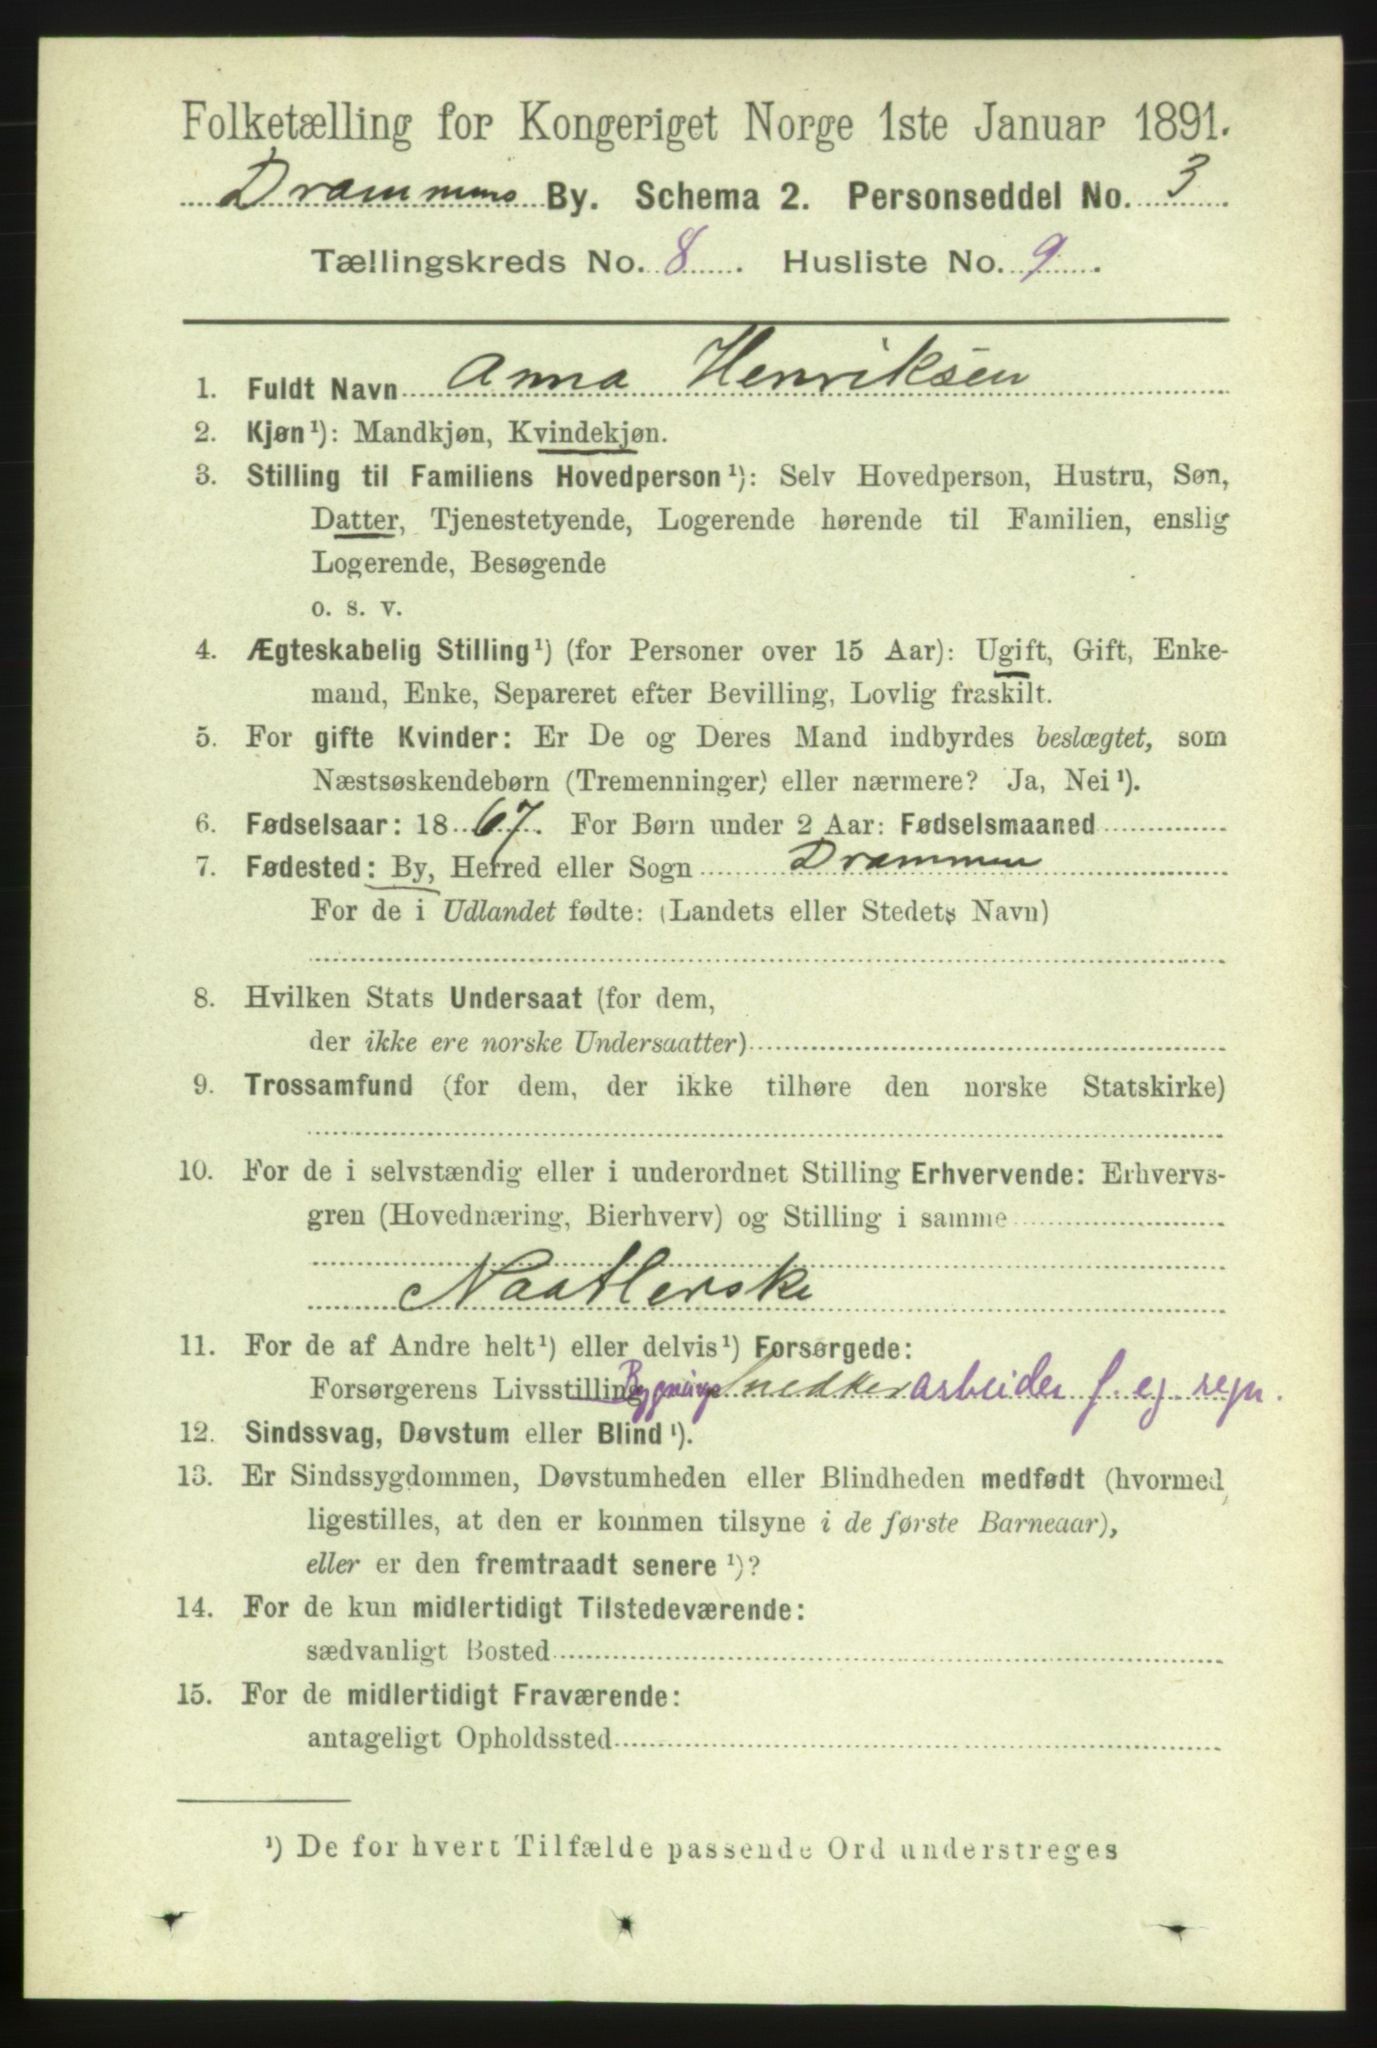 Folketælling for Kongeriget Norge 1ste Januar 1891.
Drammens By. Schema 2. Personseddel No. 3
Tællingskreds No. 8. Husliste No. 9.
1. Fuldt Navn Anna Henriksen
2. Kjøn¹): Mandkjøn, Kvindekjøn.
3. Stilling til Familiens Hovedperson¹): Selv Hovedperson, Hustru, Søn,
Datter, Tjenestetyende, Logerende hørende til Familien, enslig
Logerende, Besøgende
o. s. v.
4. Ægteskabelig Stilling¹) (for Personer over 15 Aar): Ugift, Gift, Enke-
mand, Enke, Separeret efter Bevilling, Lovlig fraskilt.
5. For gifte Kvinder: Er De og Deres Mand indbyrdes beslægtet, som
Næstsøskendebørn (Tremenninger) eller nærmere? Ja, Nei¹).
6. Fødselsaar: 1867. For Børn under 2 Aar: Fødselsmaaned
7. Fødested: By, Herred eller Sogn Drammen
For de i Udlandet fødte: (Landets eller Stedets Navn)
8. Hvilken Stats Undersaat (for dem,
der ikke ere norske Undersaatter)
9. Trossamfund (for dem, der ikke tilhøre den norske Statskirke)
10. For de i selvstændig eller i underordnet Stilling Erhvervende: Erhvervs-
gren (Hovednæring, Bierhverv) og Stilling i samme
Naatlerske
11. For de af Andre helt¹) eller delvis¹) Forsørgede:
Forsørgerens Livsstilling Bygnings Snedker arbeider f. eg. regn.
12. Sindssvag, Døvstum eller Blind¹).
13. Er Sindssygdommen, Døvstumheden eller Blindheden medfødt (hvormed
ligestilles, at den er kommen tilsyne i de første Barneaar),
eller er den fremtraadt senere¹)?
14. For de kun midlertidigt Tilstedeværende:
sædvanligt Bosted
15. For de midlertidigt Fraværende:
antageligt Opholdssted
¹) De for hvert Tilfælde passende Ord understreges